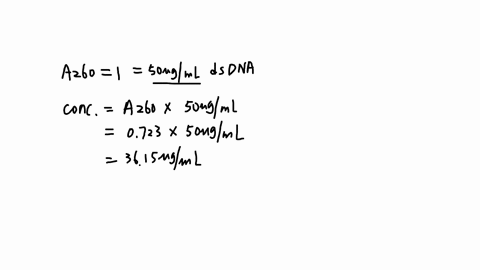 A260 = 1 = 50ug/mL dsDNA
conc. = A260 × 50ug/mL
= 0.723 × 50ug/mL
= 36.15ug/mL